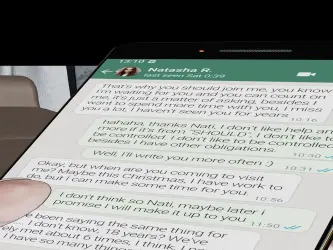 13:10
Natasha R.
last seen Sat 0:39
That's why you should join me, you know
I'm waiting for you and you can count on
me, it's just a matter of asking, besides I
want to spend more time with you, I miss
you a lot, I haven't seen you for years
10:16
hahaha, thanks Nati, I don't like help and
more if it's from "SHOULD". I don't like to
be controlled, I don't like to be controlled
besides I have other obligations
10:30
Well, I'll write you more often :)
10:31
Okay, but when are you coming to visit
me? Maybe this Christmas, I have work to
do, but I can make some time for you.
10:56
I don't think so Nati, maybe later i
promise I will make it up to you
11:50
been saying the same thing for
I don't know, 18 years? We've
met about 6 times, I think.
have so many things